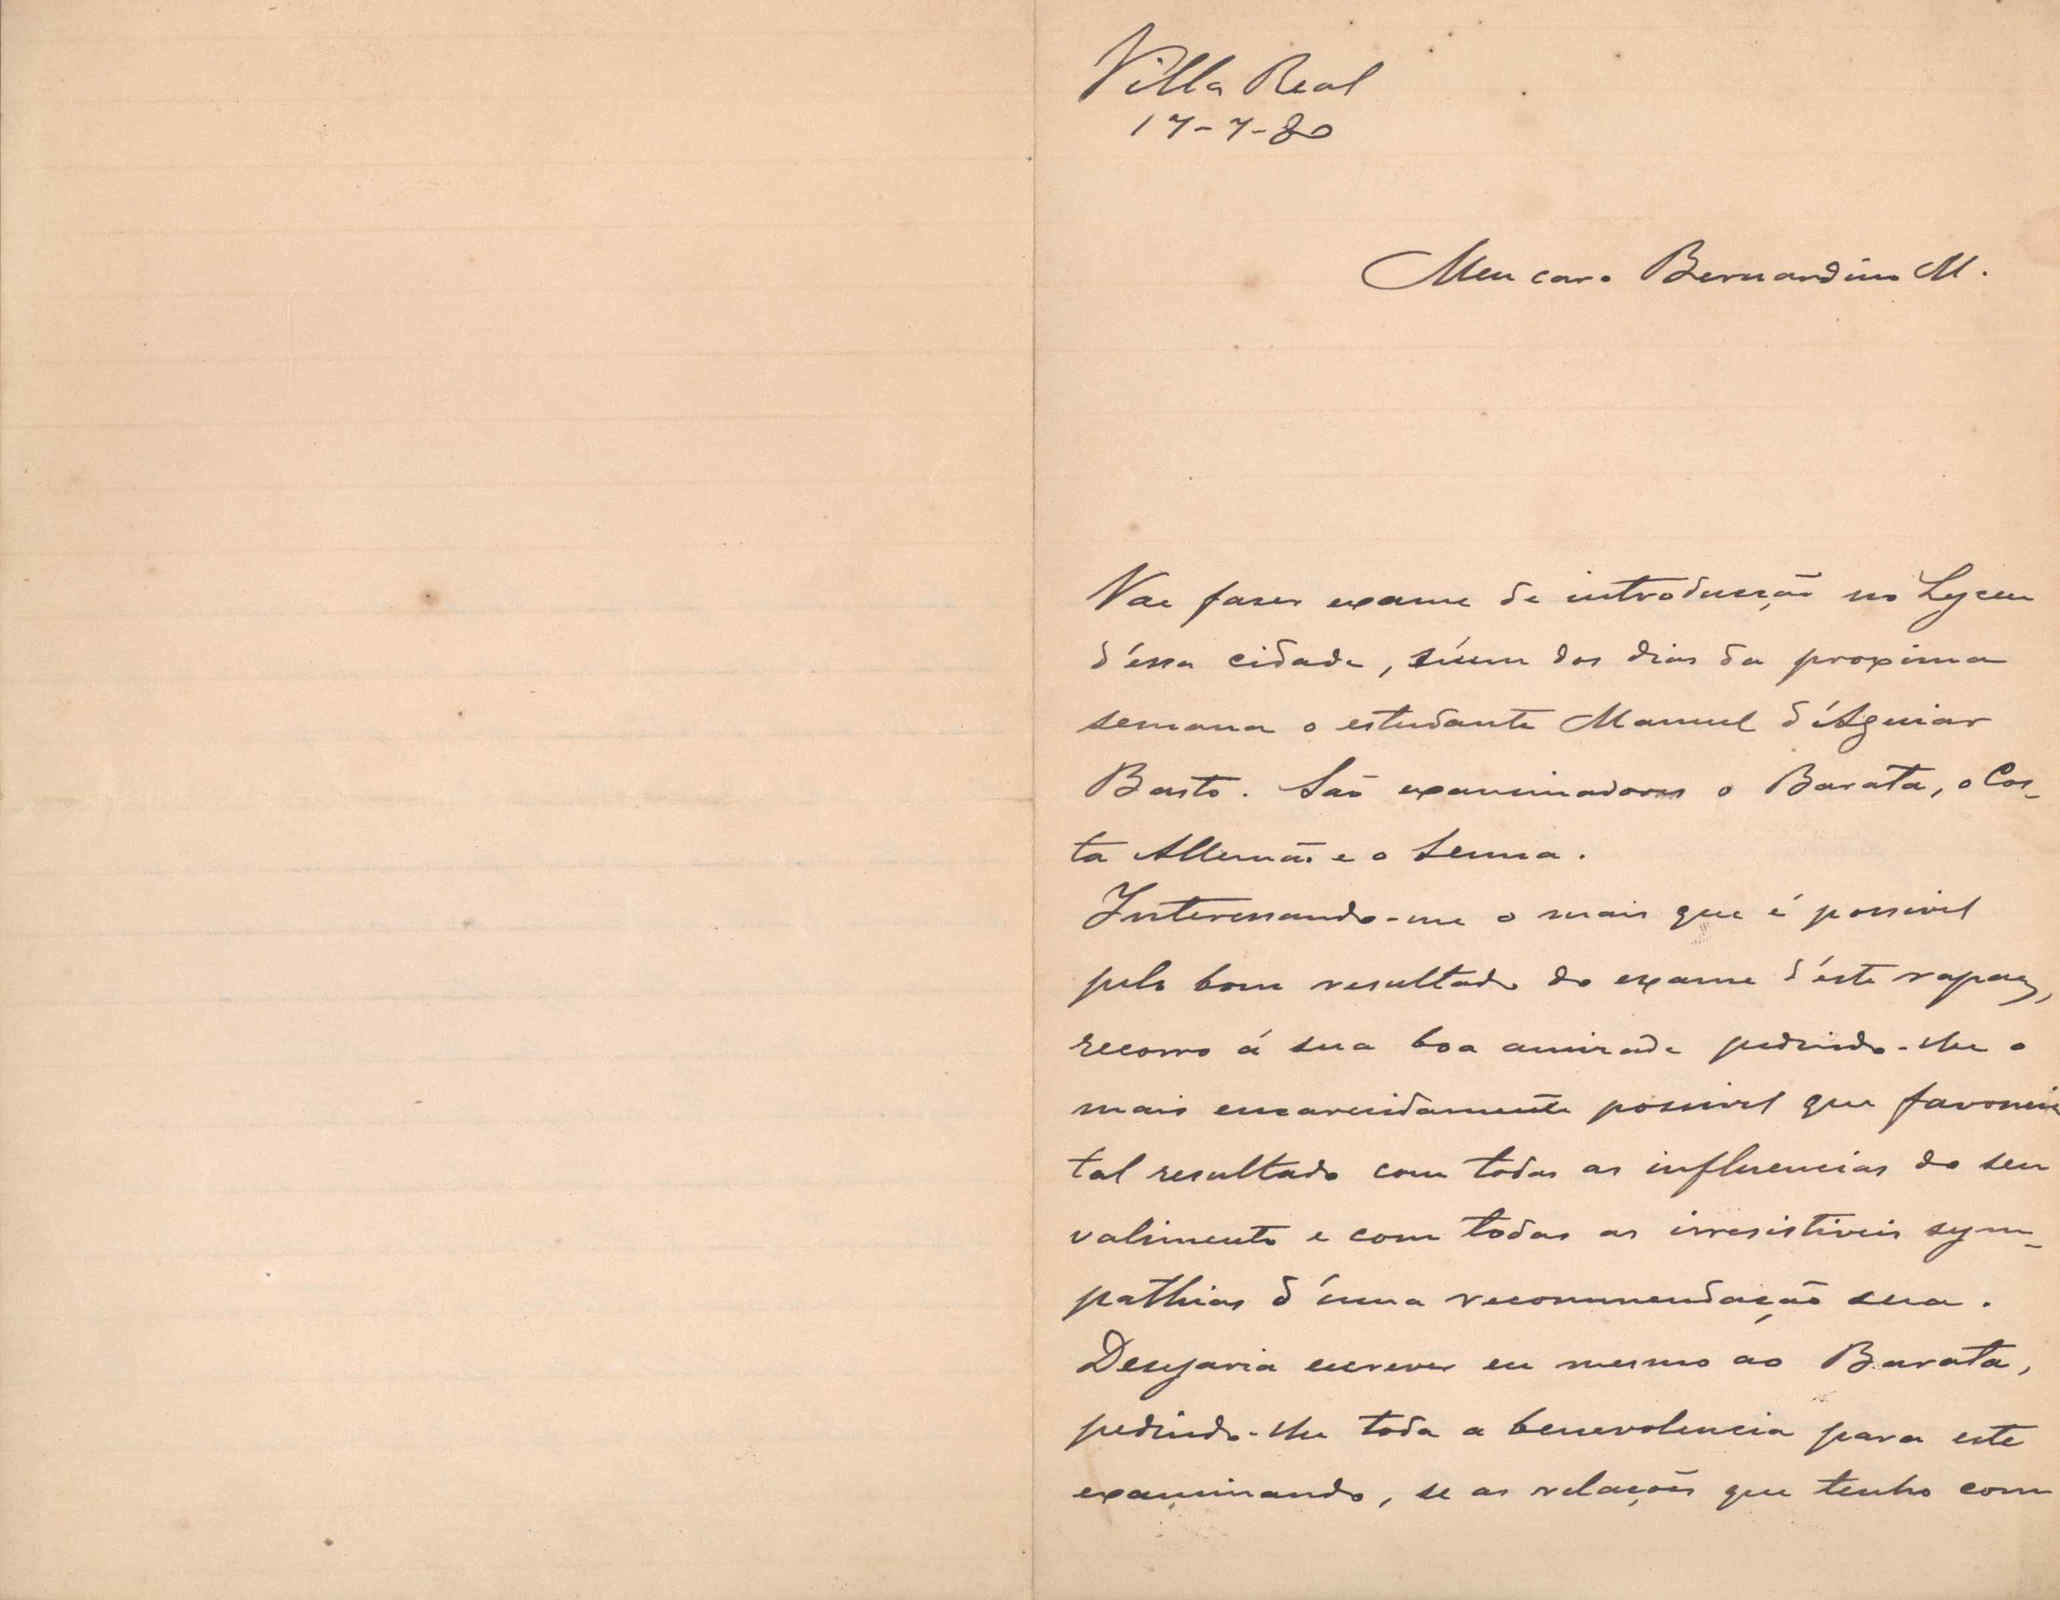 Villa Real
17-7-80
Meu caro Bernardino M.
Vae fazer exame de introducção no Lyceu
d'essa cidade, n'um dos dias da proxima
semana o estudante Manuel d'Aguiar
Basto. São examinadores o Barata, o Cos-
ta Allemão e o Senna.
Interessando-me o mais que é possivel
pelo bom resultado do exame d'este rapaz,
recorro á sua boa amizade pedindo-lhe o
mais encarecidamente possivel que favoneie
tal resultado com todas as influencias do seu
valimento e com todas as irresistiveis sym-
pathias d'uma recommendação sua.
Desejaria escrever eu mesmo ao Barata,
pedindo-lhe toda a benevolencia para este
examinando, se as relações que tenho com